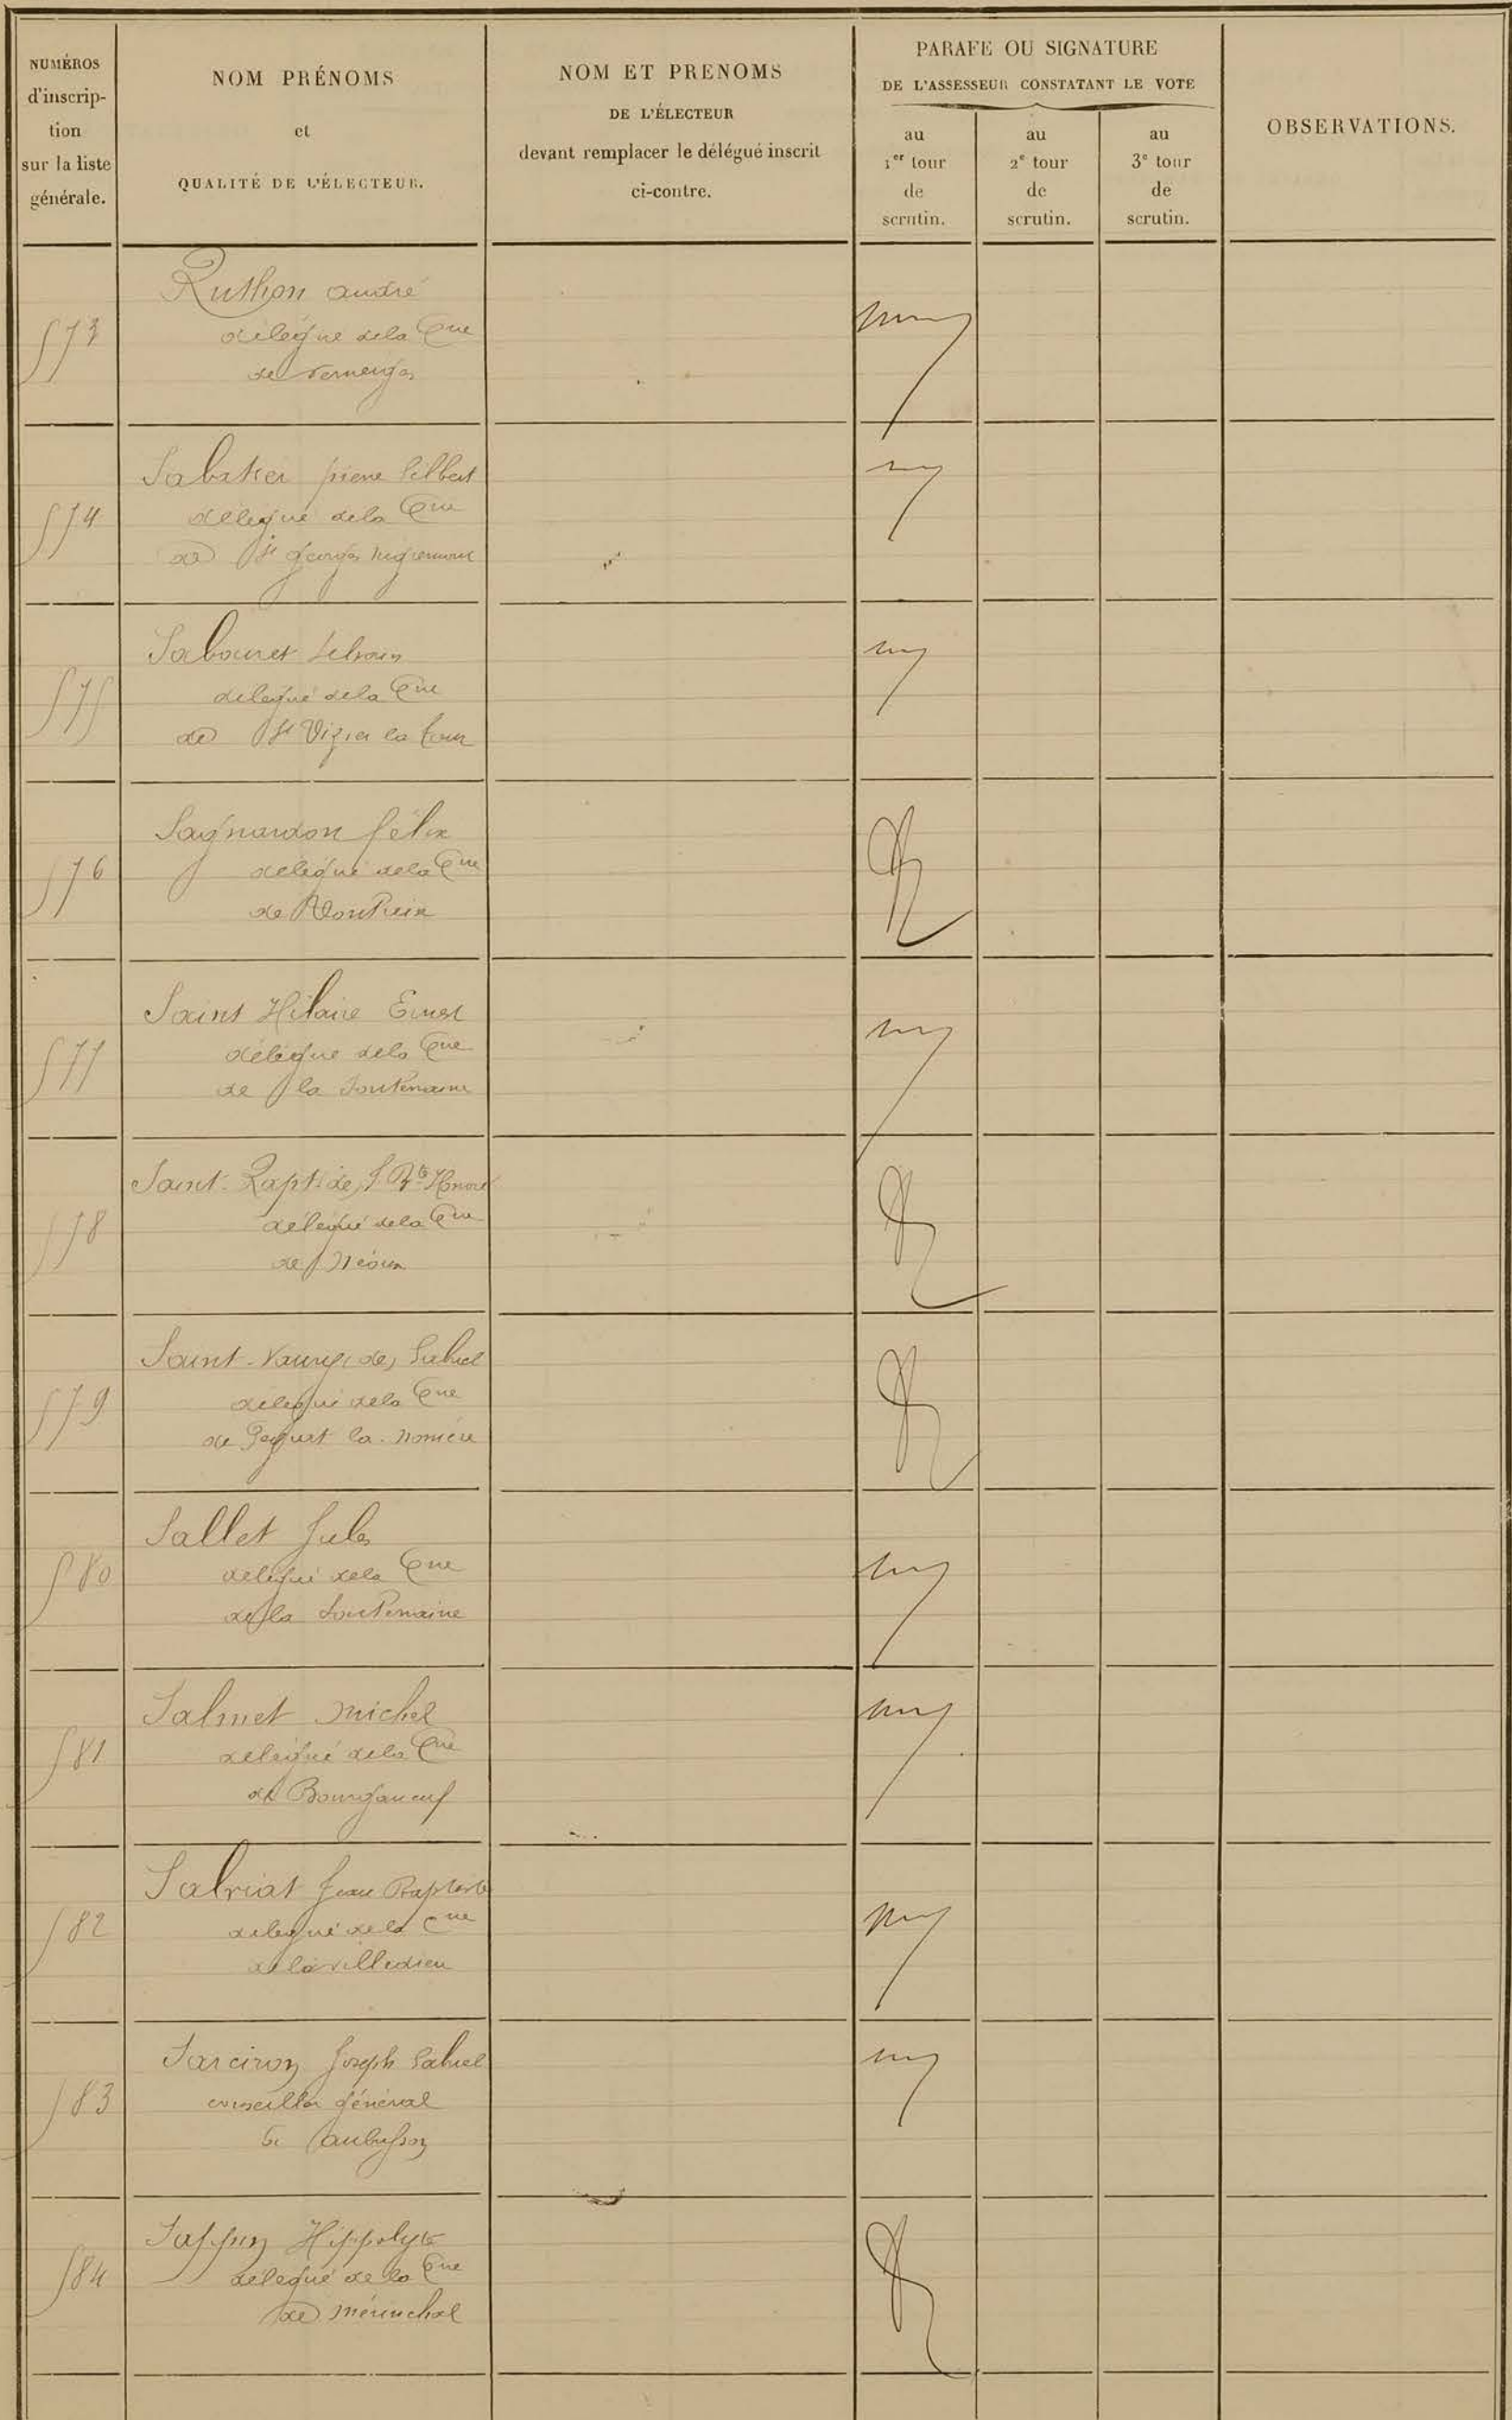 NUMÉROS
d'inscrip-
tion
sur la liste
générale.
NOM PRÉNOMS
et
QUALITÉ DE L'ÉLECTEUR.
NOM ET PRENOMS
DE L'ÉLECTEUR
devant remplacer le délégué inscrit
ci-contre.
PARAFE OU SIGNATURE
DE L'ASSESSEUR CONSTATANT LE VOTE
au
1er tour
de
scrutin.
au
2e tour
de
scrutin.
au
3e tour
de
scrutin.
OBSERVATIONS.
573
Ruthon andré
délégué de la Cne
de Verneiges
574
Sabatier pierre Gilbert
délégué de la Cne
de St georges nigremont
575
Sabouret Silvain
délégué de la Cne
de St Vizier la tour
576
Sagnardon félix
délégué de la Cne
de
577
Saint Hilaire Ernest
délégué de la Cne
de la Souterraine
578
Saint honoré
délégué de la Cne
de Néoux
579
Saint-Vaury (de) Gabriel
délégué de la Cne
de la nonière
580
Sallet Jules
délégué de la Cne
de la Souterraine
581
Salmet Michel
délégué de la Cne
de Bourganeuf
582
Salviat Jean Baptiste
délégué de la Cne
de la villedieu
583
Sarciron Joseph Gabriel
conseiller général
à aubusson
584
Sappin Hippolyte
délégué de la Cne
de mérinchal